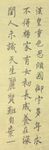 漢皇重色思傾國御宇多年求
不得楊家有女初長成養在深
閨人未識天生麗質難自棄一